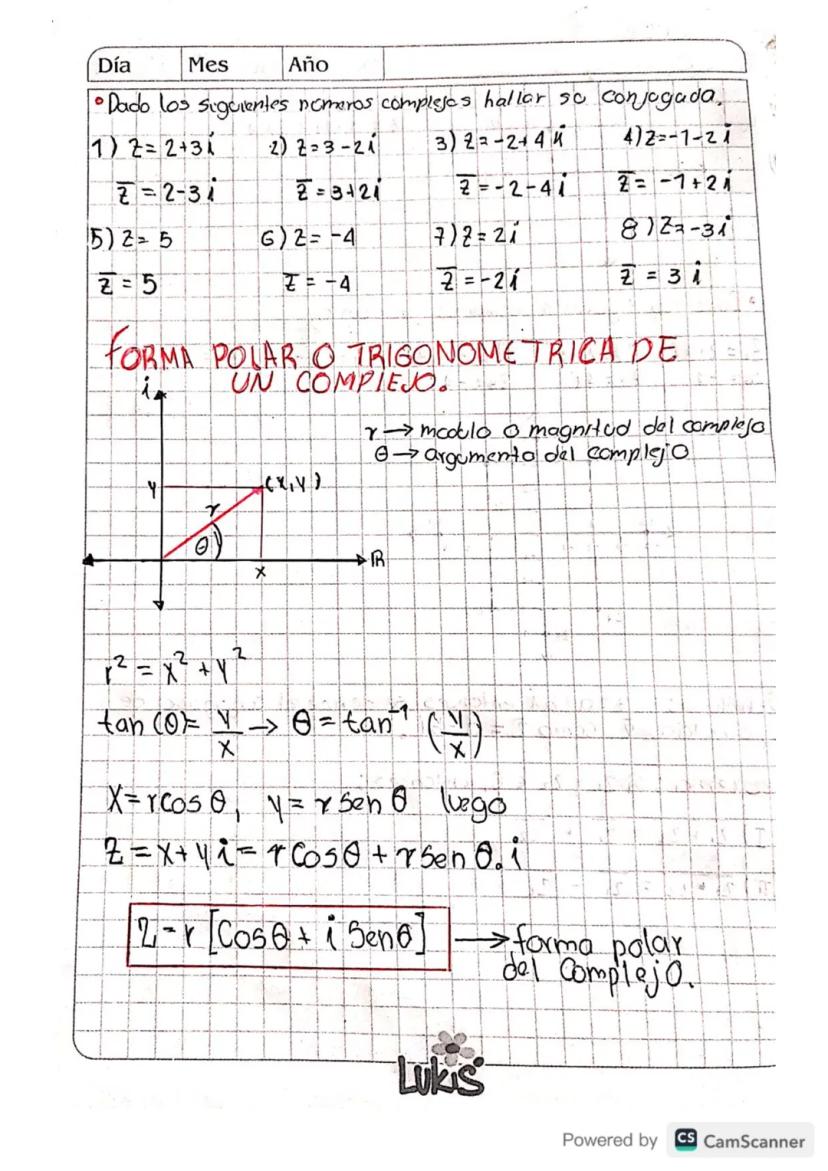 Día Mes Año
° Dado los siguientes numeros complejos hallar su conjugada.
1) z = 2+3i 2) z = 3-2i 3) z = -2+4i 4) z = -1-2i
z̅ = 2-3i z̅ = 3+2i z̅ = -2-4i z̅ = -1+2i
5) z = 5 6) z = -4 7) z = 2i 8) z = -3i
z̅ = 5 z̅ = -4 z̅ = -2i z̅ = 3i
FORMA POLAR O TRIGONOMETRICA DE
UN COMPLEJO.
i
r → modulo o magnitud del complejo
θ → argumento del complejo
y (x,y)
r
θ
x
R
r² = x² + y²
tan(θ) = y/x → θ = tan⁻¹ (y/x)
X = r cos θ, y = r sen θ luego
z = x + yi = r Cos θ + r Sen θ . i
z = r [Cos θ + i Sen θ] → forma polar
del Complejo.
LUKIS
Powered by CS CamScanner